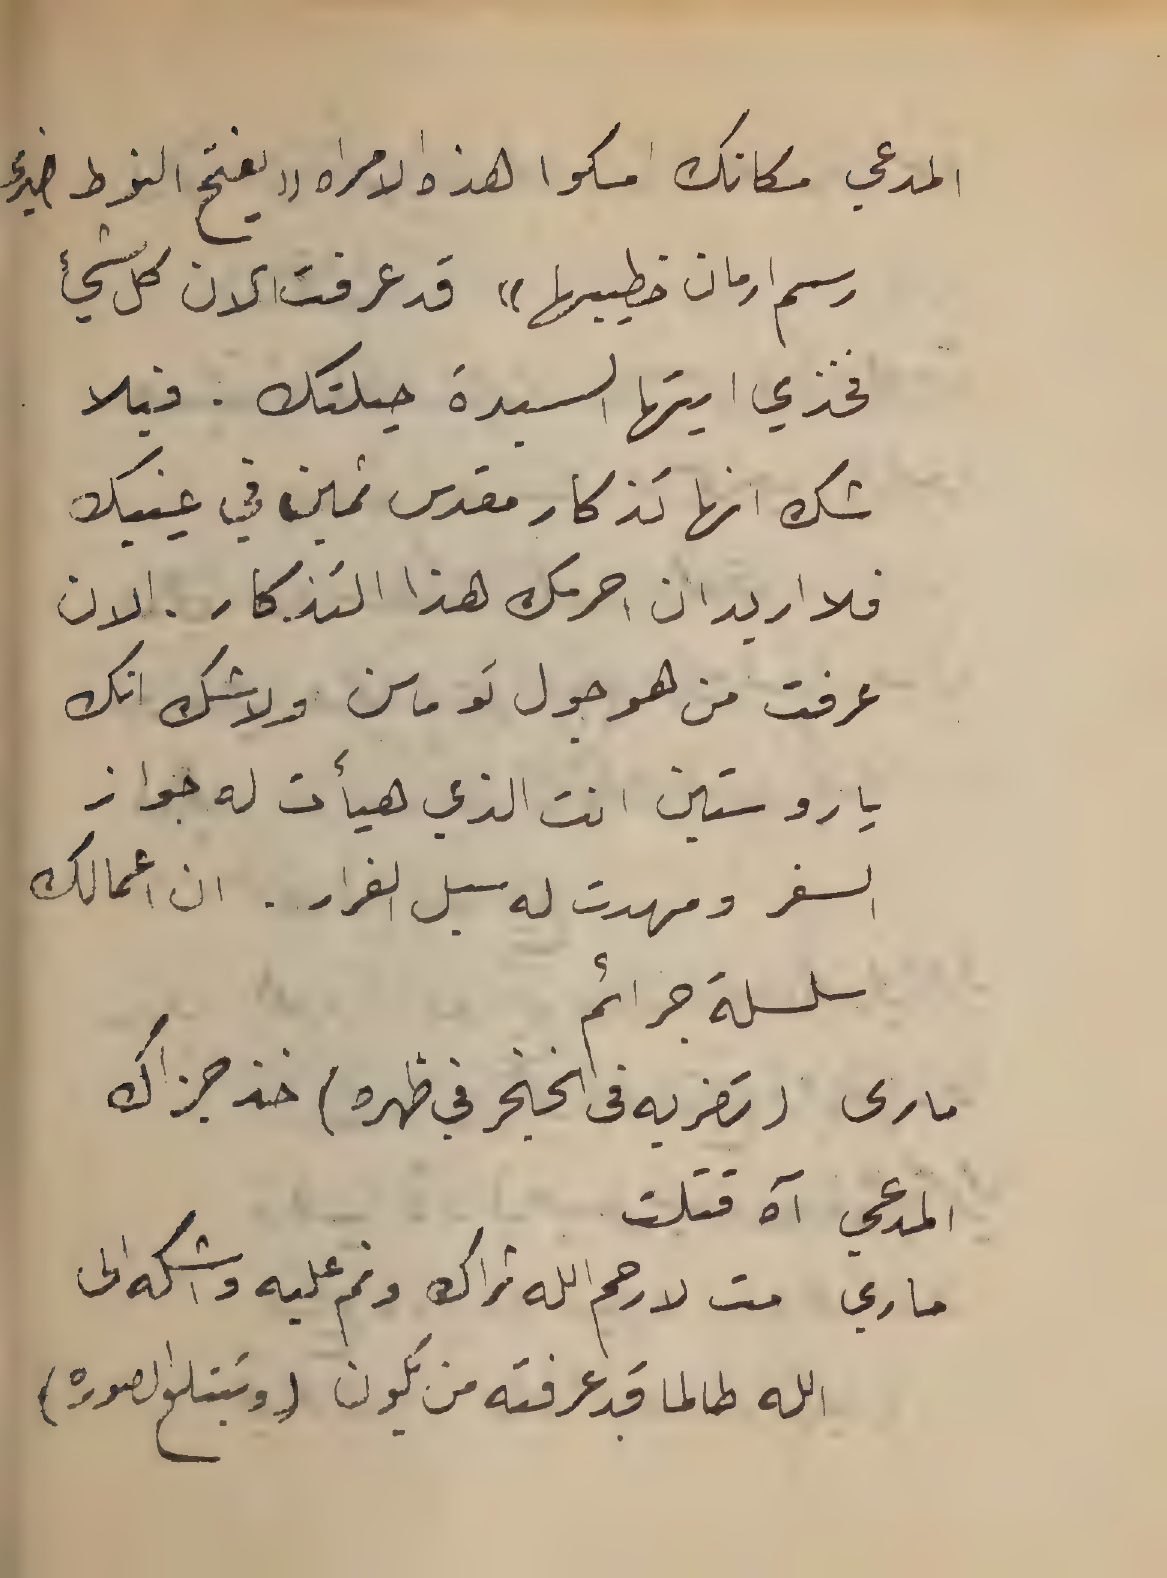 المدعي مكانك امسكوا هذه الامراه (( يفتح النوط فيرى
رسم ارمان خطيبها )) قد عرفت الان كل شيء
فخذي ايتها السيدة حيلتك . فبلا
شك انها تذكار مقدس ثمين في عينيك
فلا اريد ان احرمك هذا التذكار . الان
عرفت من هو جول توماسن ولاشك انك
يا روستين انت الذي هيأت له جواز
السفر ومهدت له سبل الفرار . ان اعمالك
سلسلة جرائم
مارى ( تضربه فى الخنجر في ظهره ) خذ جزاك
المدعي آه قتلت
ماري مت لا رحم الله ثراك ونم عليه واشكه الى
الله طالما قد عرفته من تكون ( وتبتلع الصوره )